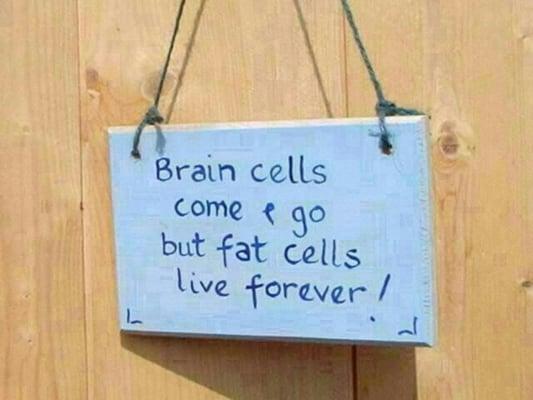 Brain cells
come & go
but fat cells
live forever!